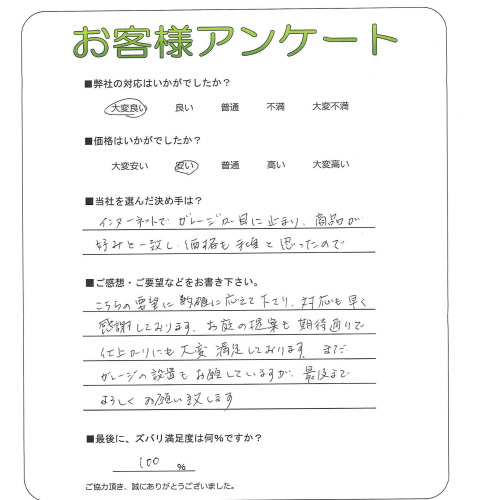 お客様アンケート
■弊社の対応はいかがでしたか？
大変良い 良い 普通 不満 大変不満
■価格はいかがでしたか？
大変安い 安い 普通 高い 大変高い
■当社を選んだ決め手は？
インターネットで ガレージが目に止まり、商品が
好みと一致し、価格も手準と思ったので
■ご感想・ご要望などをお書き下さい。
こちらの要望に的確に応えて下さり、対応も早く
感謝しております。お庭の提案も期待通りで
仕上がりにも大変満足しております。まだ
ガレージの設置もお願いしていますが、最後まで
よろしくお願い致します
■最後に、ズバリ満足度は何％ですか？
100 %
ご協力頂き、誠にありがとうございました。